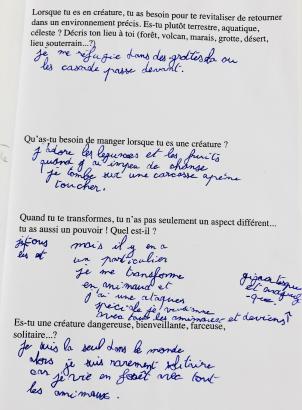 Lorsque tu es en créature, tu as besoin pour te revitaliser de retourner
dans un environnement précis. Es-tu plutôt terrestre, aquatique,
céleste ? Décris ton lieu à toi (forêt, volcan, marais, grotte, désert,
lieu souterrain...?)
je me réfugie dans des grottes là ou
les cascade passe devant.
Qu'as-tu besoin de manger lorsque tu es une créature ?
j'adore les legumes et les fruits
quand j'ai un peu de chance
je tombe sur une carcasse à peine
toucher.
Quand tu te transformes, tu n'as pas seulement un aspect différent...
tu as aussi un pouvoir ! Quel est-il ?
mais il y en a
un particulier
je me transforme
en animaux et
j'ai une ataques
spéciale je
avec tout les animaux et deviens
gigantesque
et
Es-tu une créature dangereuse, bienveillante, farceuse,
solitaire...?
je suis la seul dans le monde
alors je suis rarement solitaire
car je vie en forêt avec tout
les animaux.